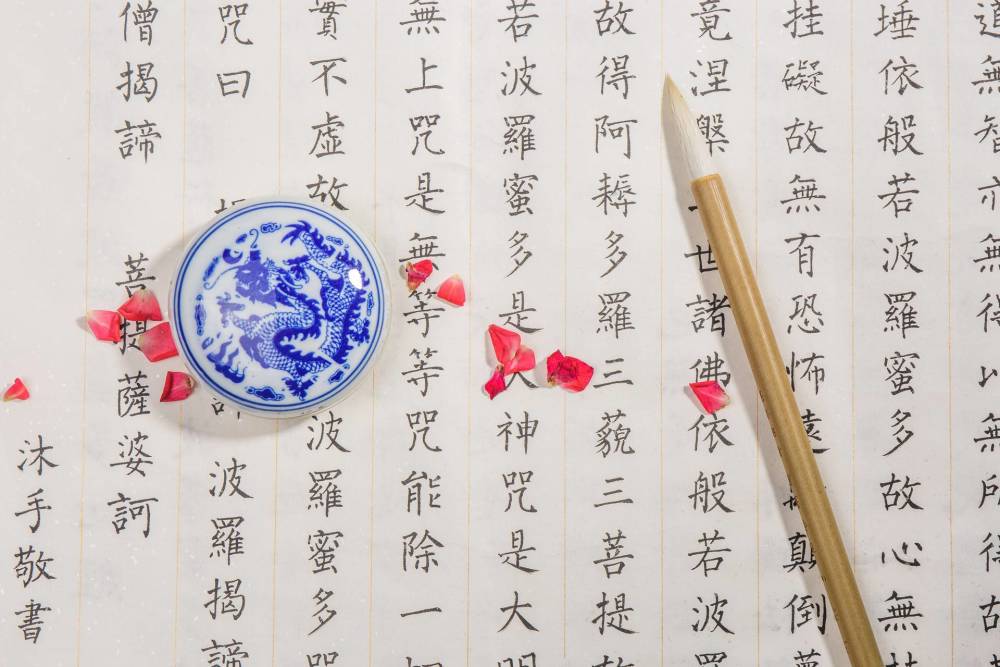 道無智亦無得以無所得故
埵依般若波羅蜜多故心無
挂礙故無有恐怖遠顛倒
竟涅槃世諸佛依般若波羅
故得阿耨多羅三藐三菩提故
若波羅蜜多是大神咒是大明
無上咒是無等等咒能除一切
實不虛故波羅蜜多咒
咒曰波羅揭諦
僧揭諦菩提薩婆訶
沐手敬書